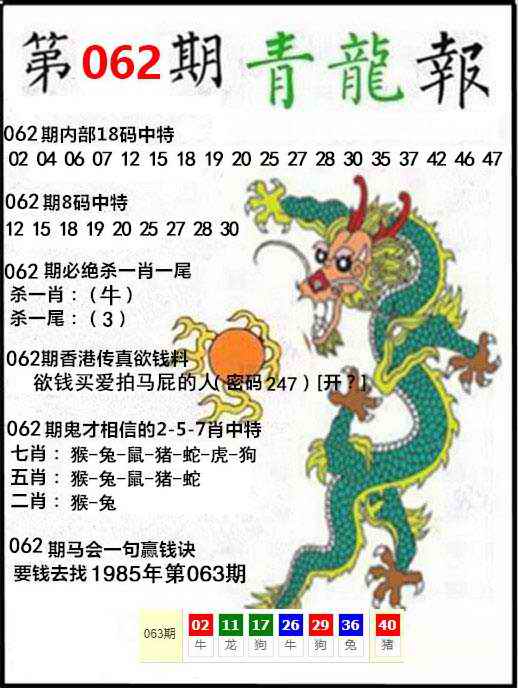 第062期青龍報
062期内部18码中特
02 04 06 07 12 15 18 19 20 25 27 28 30 35 37 42 46 47
062期8码中特
12 15 18 19 20 25 27 28 30
062期必绝杀一肖一尾
杀一肖：（牛）
杀一尾：（3）
062期香港传真欲钱料
欲钱买爱拍马屁的人（密码247）[开？]
062期鬼才相信的2-5-7肖中特
七肖：猴-兔-鼠-猪-蛇-虎-狗
五肖：猴-兔-鼠-猪-蛇
二肖：猴-兔
062期马会一句赢钱诀
要钱去找1985年第063期
063期 02 11 17 26 29 36 40
牛 龙 狗 牛 狗 兔 猪